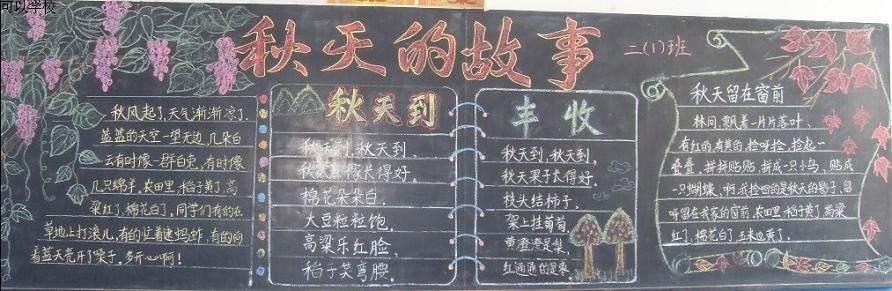 可以学校
秋天的故事
二(1)班
秋风起了,天气渐渐凉了.
蓝蓝的天空一望无边,几朵白
云有时像一群白兔,有时像
几只绵羊.农田里,稻子黄了,高
粱红了,棉花白了.同学们有的在
草地上打滚儿,有的忙着逮蚂蚱,有的向
着蓝天亮开了嗓子,多开心啊!
秋天到
秋天到,秋天到,
秋 长得好。
棉花朵朵白,
大豆粒粒饱,
高粱乐红脸,
稻子笑弯腰.
丰收
秋天到,秋天到,
秋天果子长得好。
枝头结柿子,
架上挂葡萄,
黄澄澄是梨,
红通通的是枣.
秋天留在窗前
林间,飘着一片片落叶,
有红的有黄的,捡呀捡,捡起一
叠叠,拼拼贴贴,拼成一只小鸟,贴成
一只蝴蝶,啊,我捡回的是秋天的影子,留
在我家的窗前,农田里稻子黄了高粱
红了,棉花白了玉米也黄了.